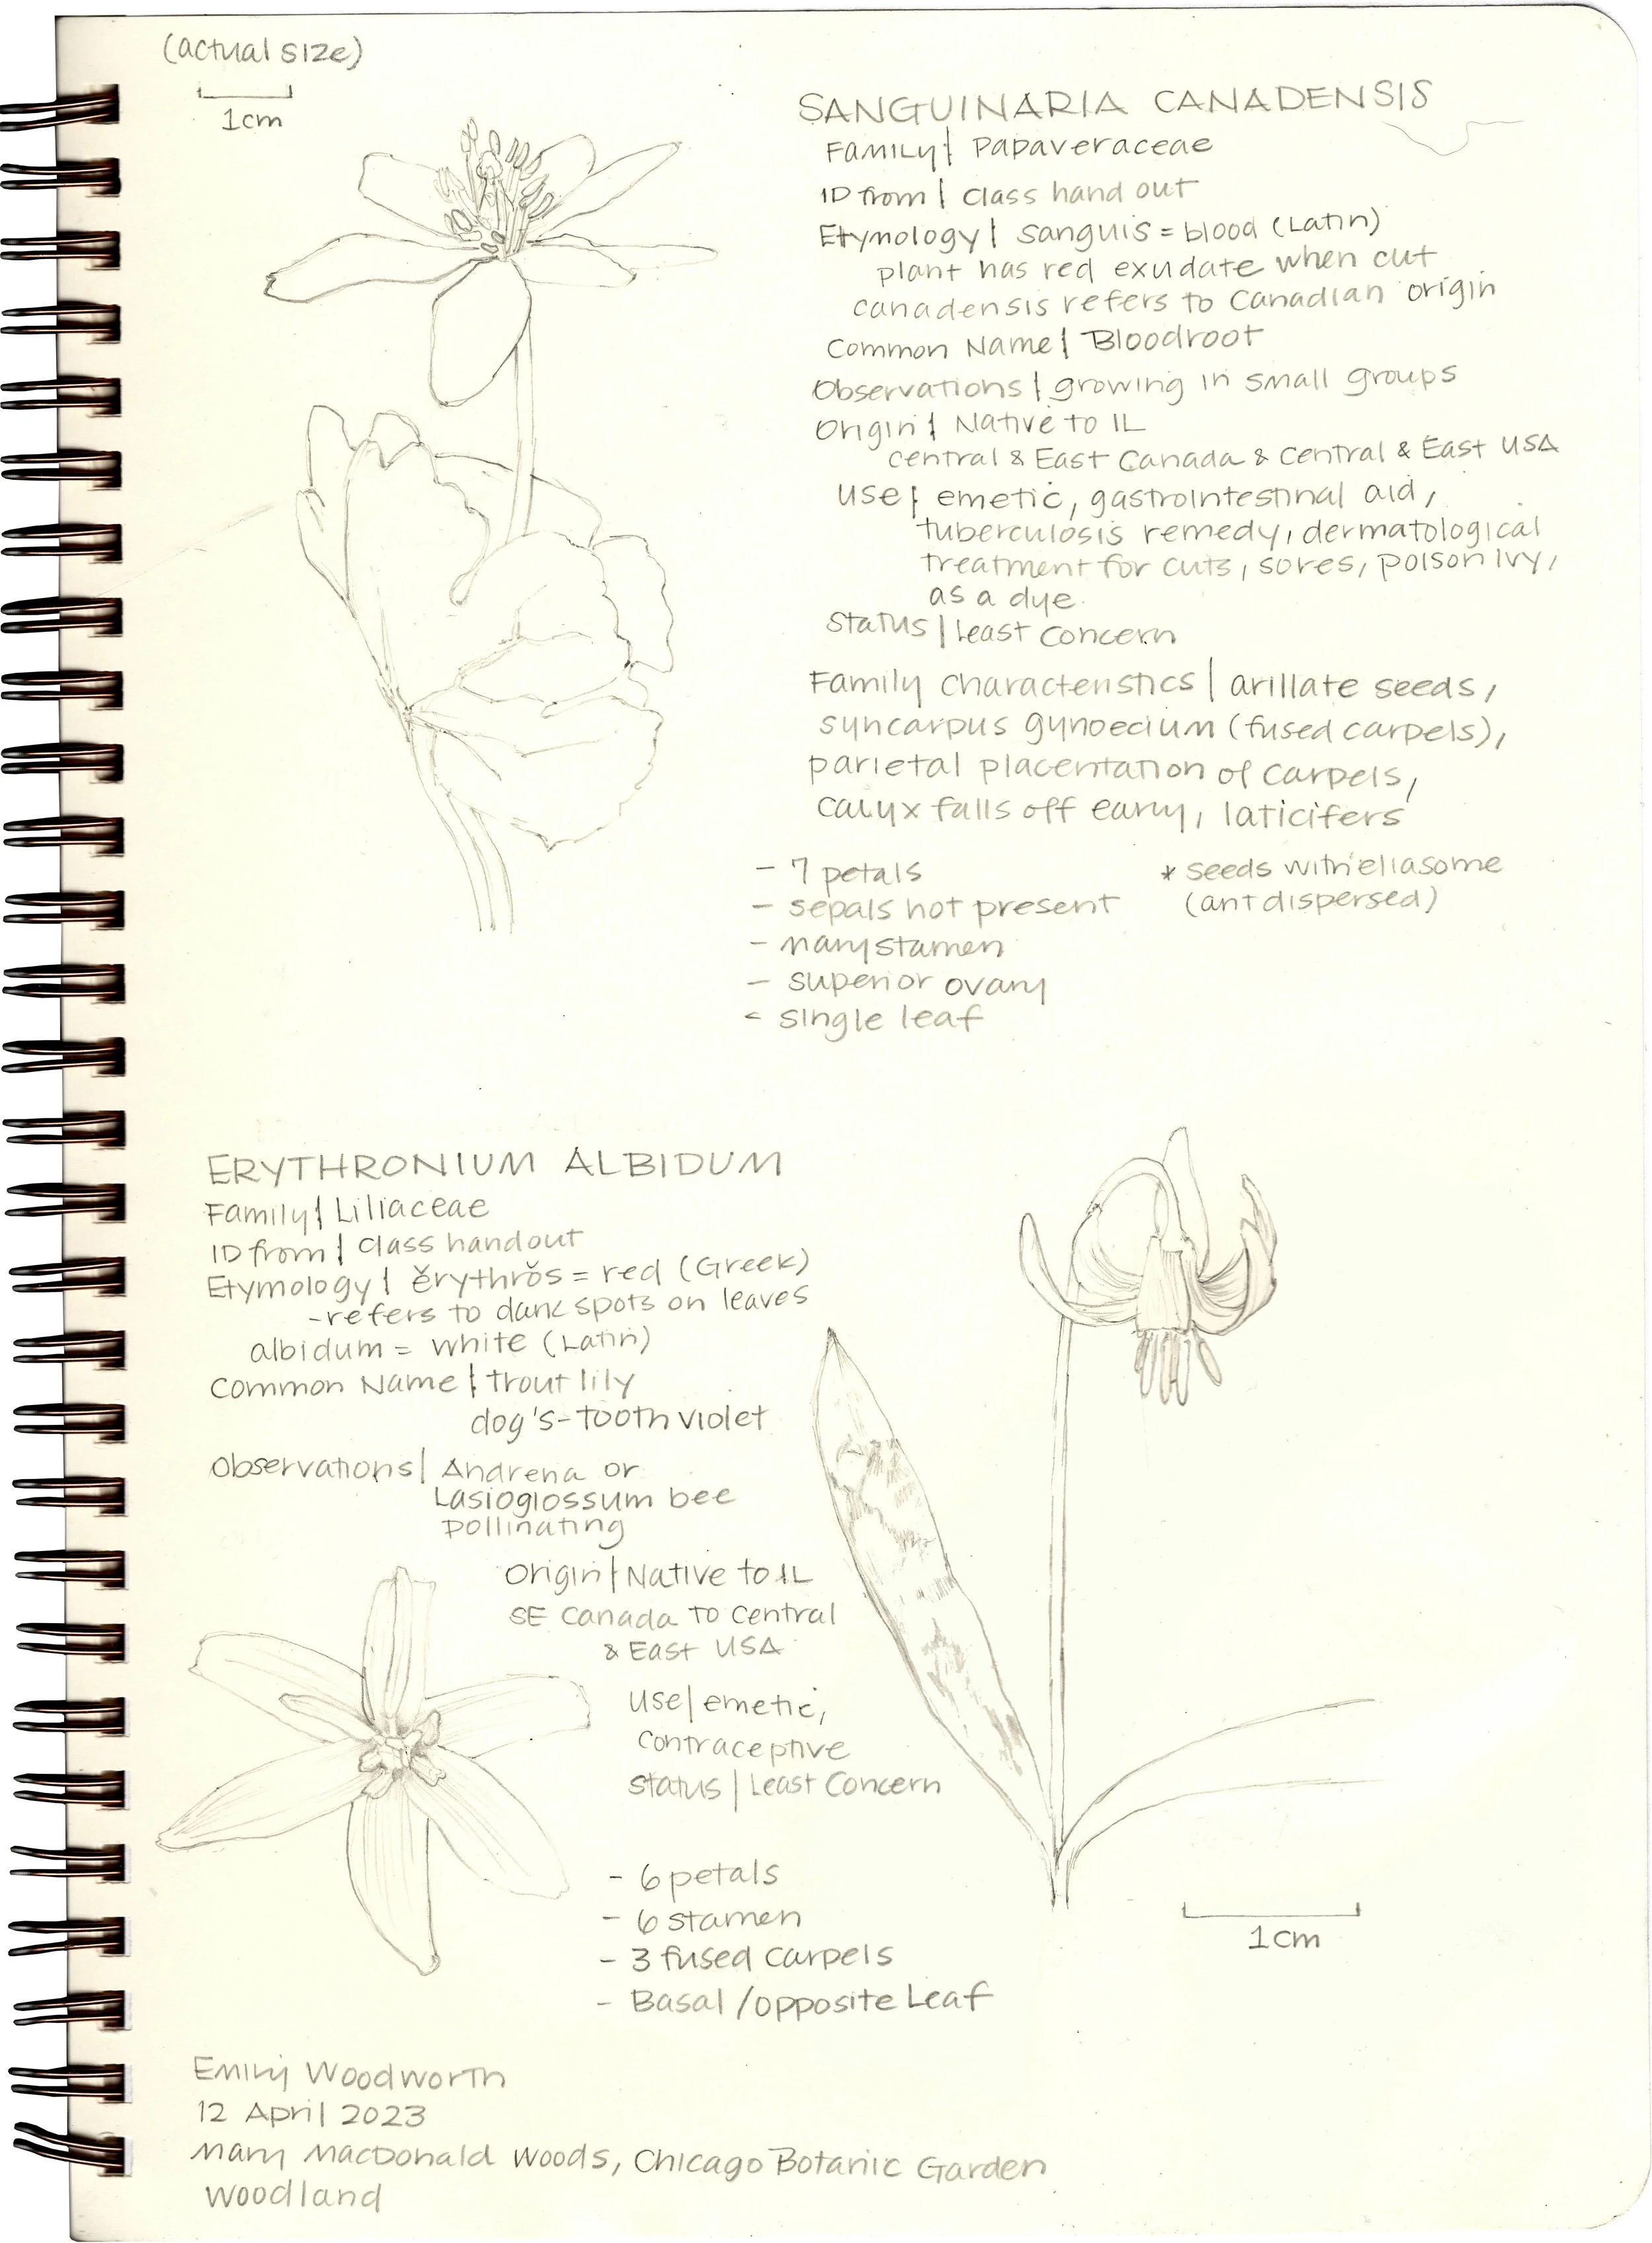 (actual size)
1cm
SANGUINARIA CANADENSIS
Family | Papaveraceae
ID from | class hand out
Etymology | sanguis = blood (Latin)
plant has red exudate when cut
canadensis refers to Canadian origin
Common Name | Bloodroot
Observations | growing in small groups
Origin | Native to IL
central & East Canada & Central & East USA
Use | emetic, gastrointestinal aid,
tuberculosis remedy, dermatological
treatment for cuts, sores, poison ivy,
as a dye.
Status | Least Concern
Family Characteristics | arillate seeds,
syncarpus gynoecium (fused carpels),
parietal placentation of carpels,
calyx falls off early, laticifers
- 7 petals
- sepals not present
- many stamen
- superior ovary
- single leaf
* seeds with eliasome
(ant dispersed)
ERYTHRONIUM ALBIDUM
Family | Liliaceae
ID from | class handout
Etymology | ĕrythrŏs = red (Greek)
- refers to dark spots on leaves
albidum = white (Latin)
Common Name | trout lily
dog's-tooth violet
Observations | Andrena or
Lasioglossum bee
pollinating
Origin | Native to IL
SE Canada to Central
& East USA
Use | emetic,
contraceptive
Status | Least Concern
- 6 petals
- 6 stamen
- 3 fused carpels
- Basal/opposite Leaf
1cm
Emily Woodworth
12 April 2023
Mary MacDonald Woods, Chicago Botanic Garden
Woodland